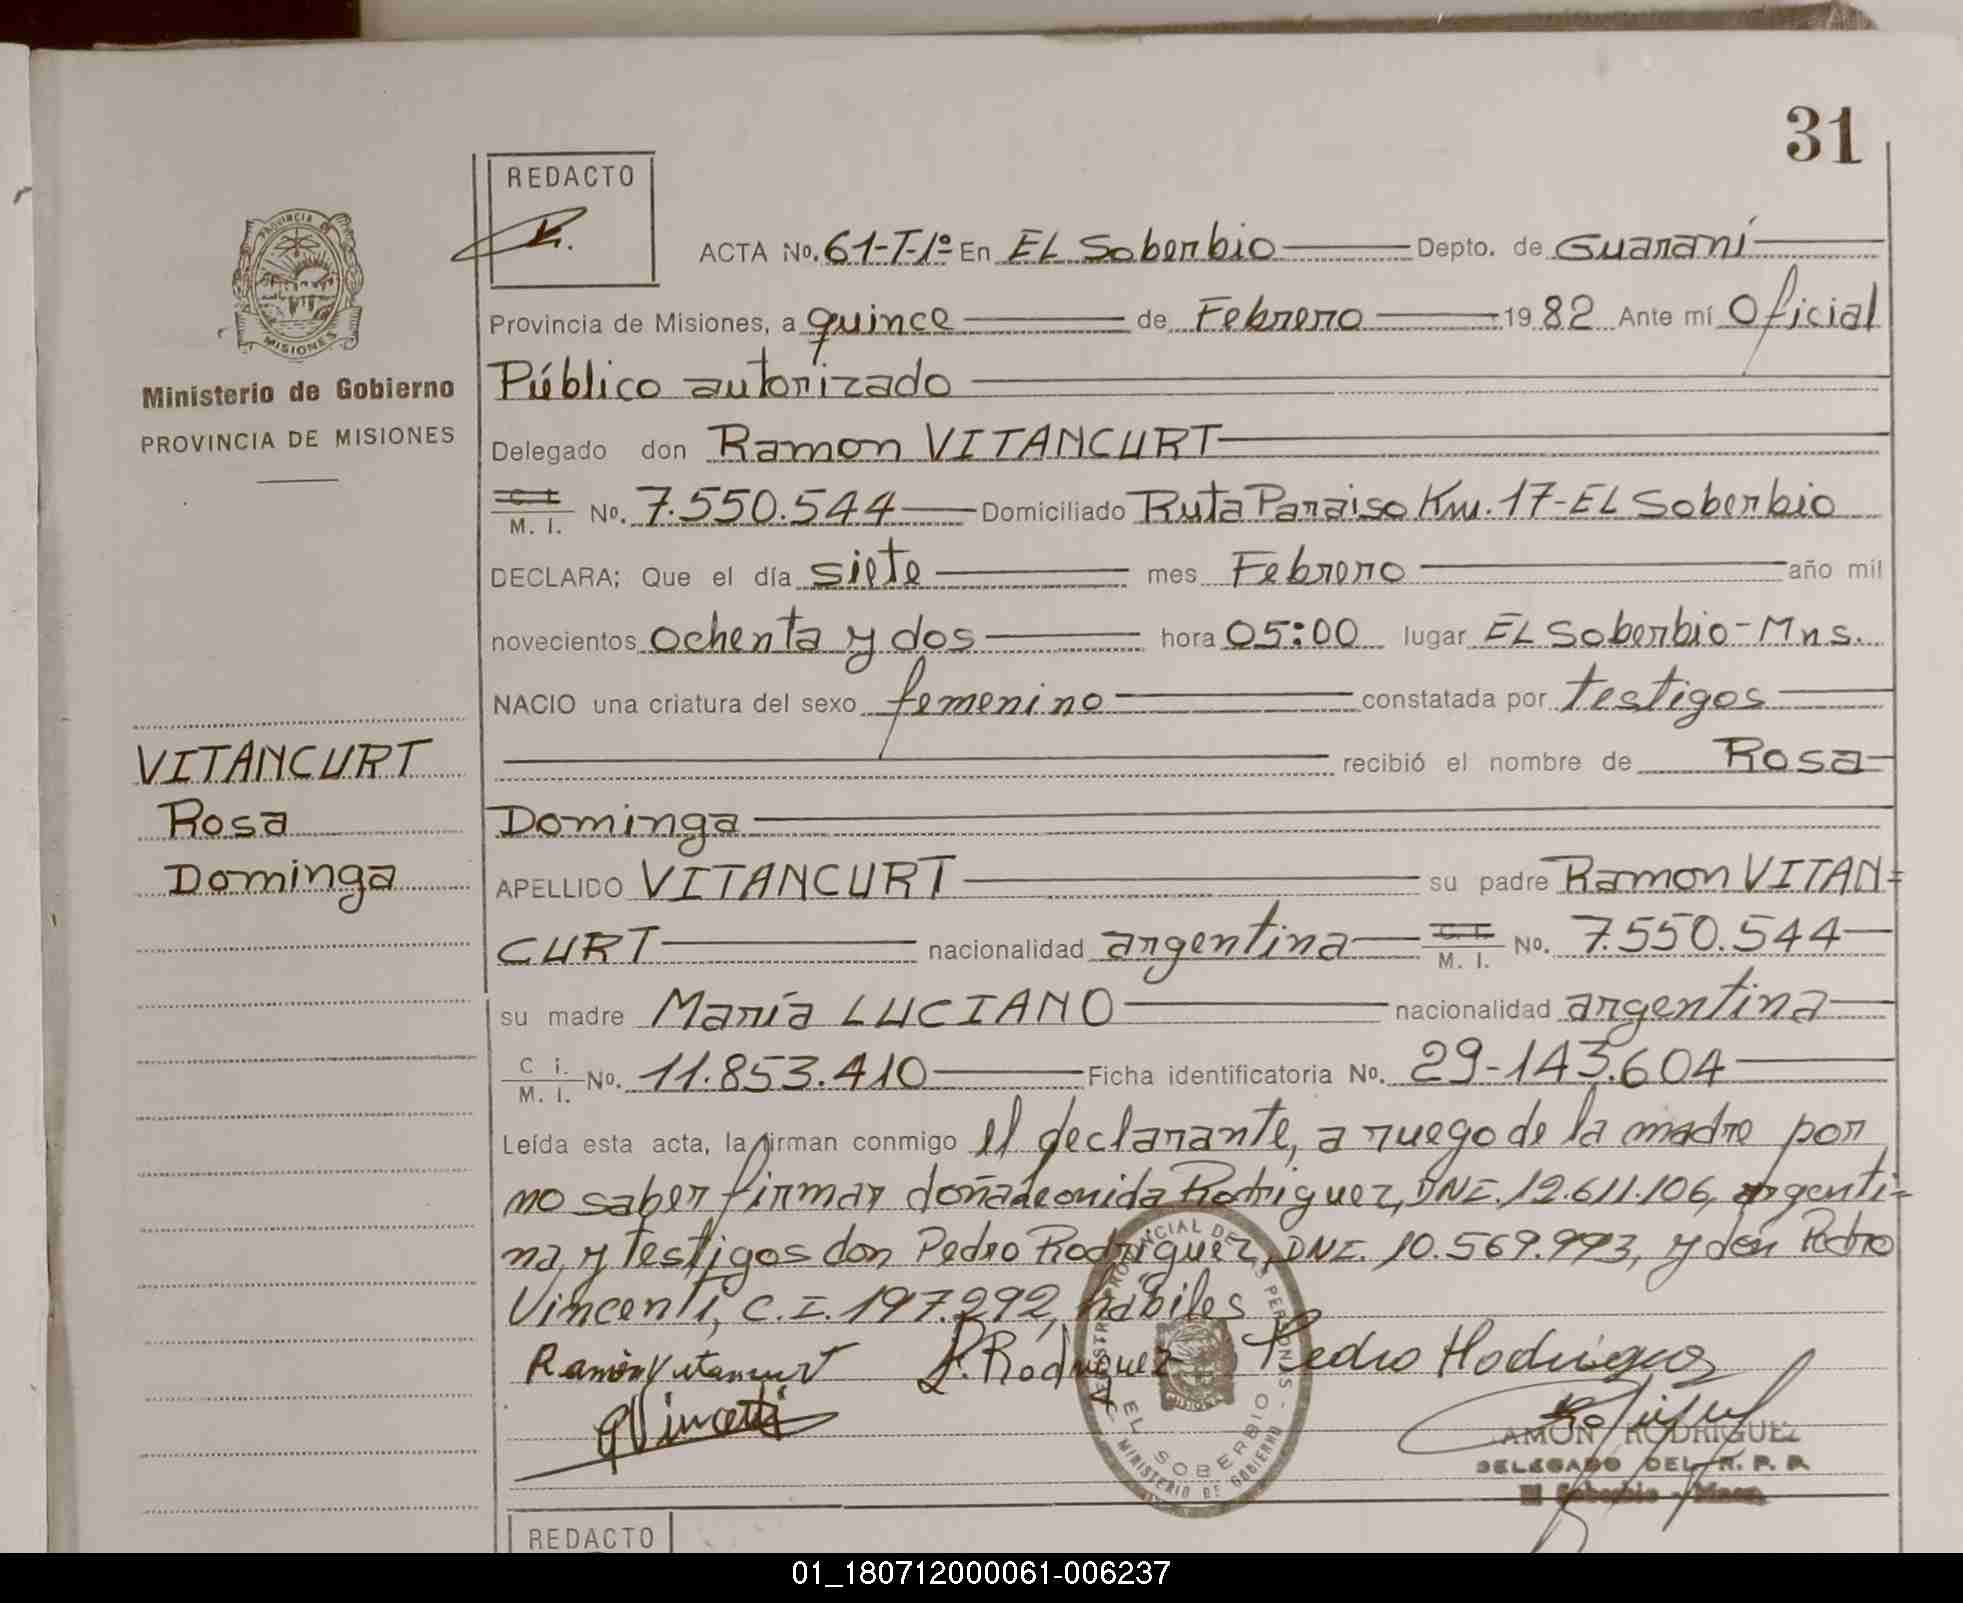 31
REDACTO
ACTA No. 61-T-1º En EL Soberbio Depto. de Guaraní
Provincia de Misiones, a quince de Febrero 1982 Ante mí Oficial
Público autorizado
PROVINCIA DE MISIONES
Ministerio de Gobierno
PROVINCIA DE MISIONES
Delegado don Ramon VITANCURT
C. I. M. I. No. 7.550.544 Domiciliado Ruta Paraiso Km. 17-EL Soberbio
DECLARA; Que el día siete mes Febrero año mil
novecientos ochenta y dos hora 05:00 lugar EL Soberbio-Mns.
NACIO una criatura del sexo femenino constatada por testigos
recibió el nombre de Rosa
Dominga
VITANCURT
Rosa
Dominga
APELLIDO VITANCURT su padre Ramon VITAN=
CURT nacionalidad argentina C. I. M. I. No. 7.550.544
su madre María LUCIANO nacionalidad argentina
C i. M. I. No. 11.853.410 Ficha identificatoria No. 29-143.604
Leída esta acta, la firman conmigo el declarante, a ruego de la madre por
no saber firmar doña Leonida Rodriguez, DNI. 12.611.106, argenti=
na, y testigos don Pedro Rodriguez, DNI. 10.569.993, y don Pedro
Vincenti, C.I. 197.292, hábiles
Ramón Vitancurt L. Rodriguez Pedro Rodriguez
PVincenti
REGISTRO PROVINCIAL DE LAS PERSONAS
MISIONES
EL SOBERBIO
MINISTERIO DE GOBIERNO
AMON RODRIGUEZ
DELEGADO DEL R. P. P.
El Soberbio - Mnes.
REDACTO
01_180712000061-006237